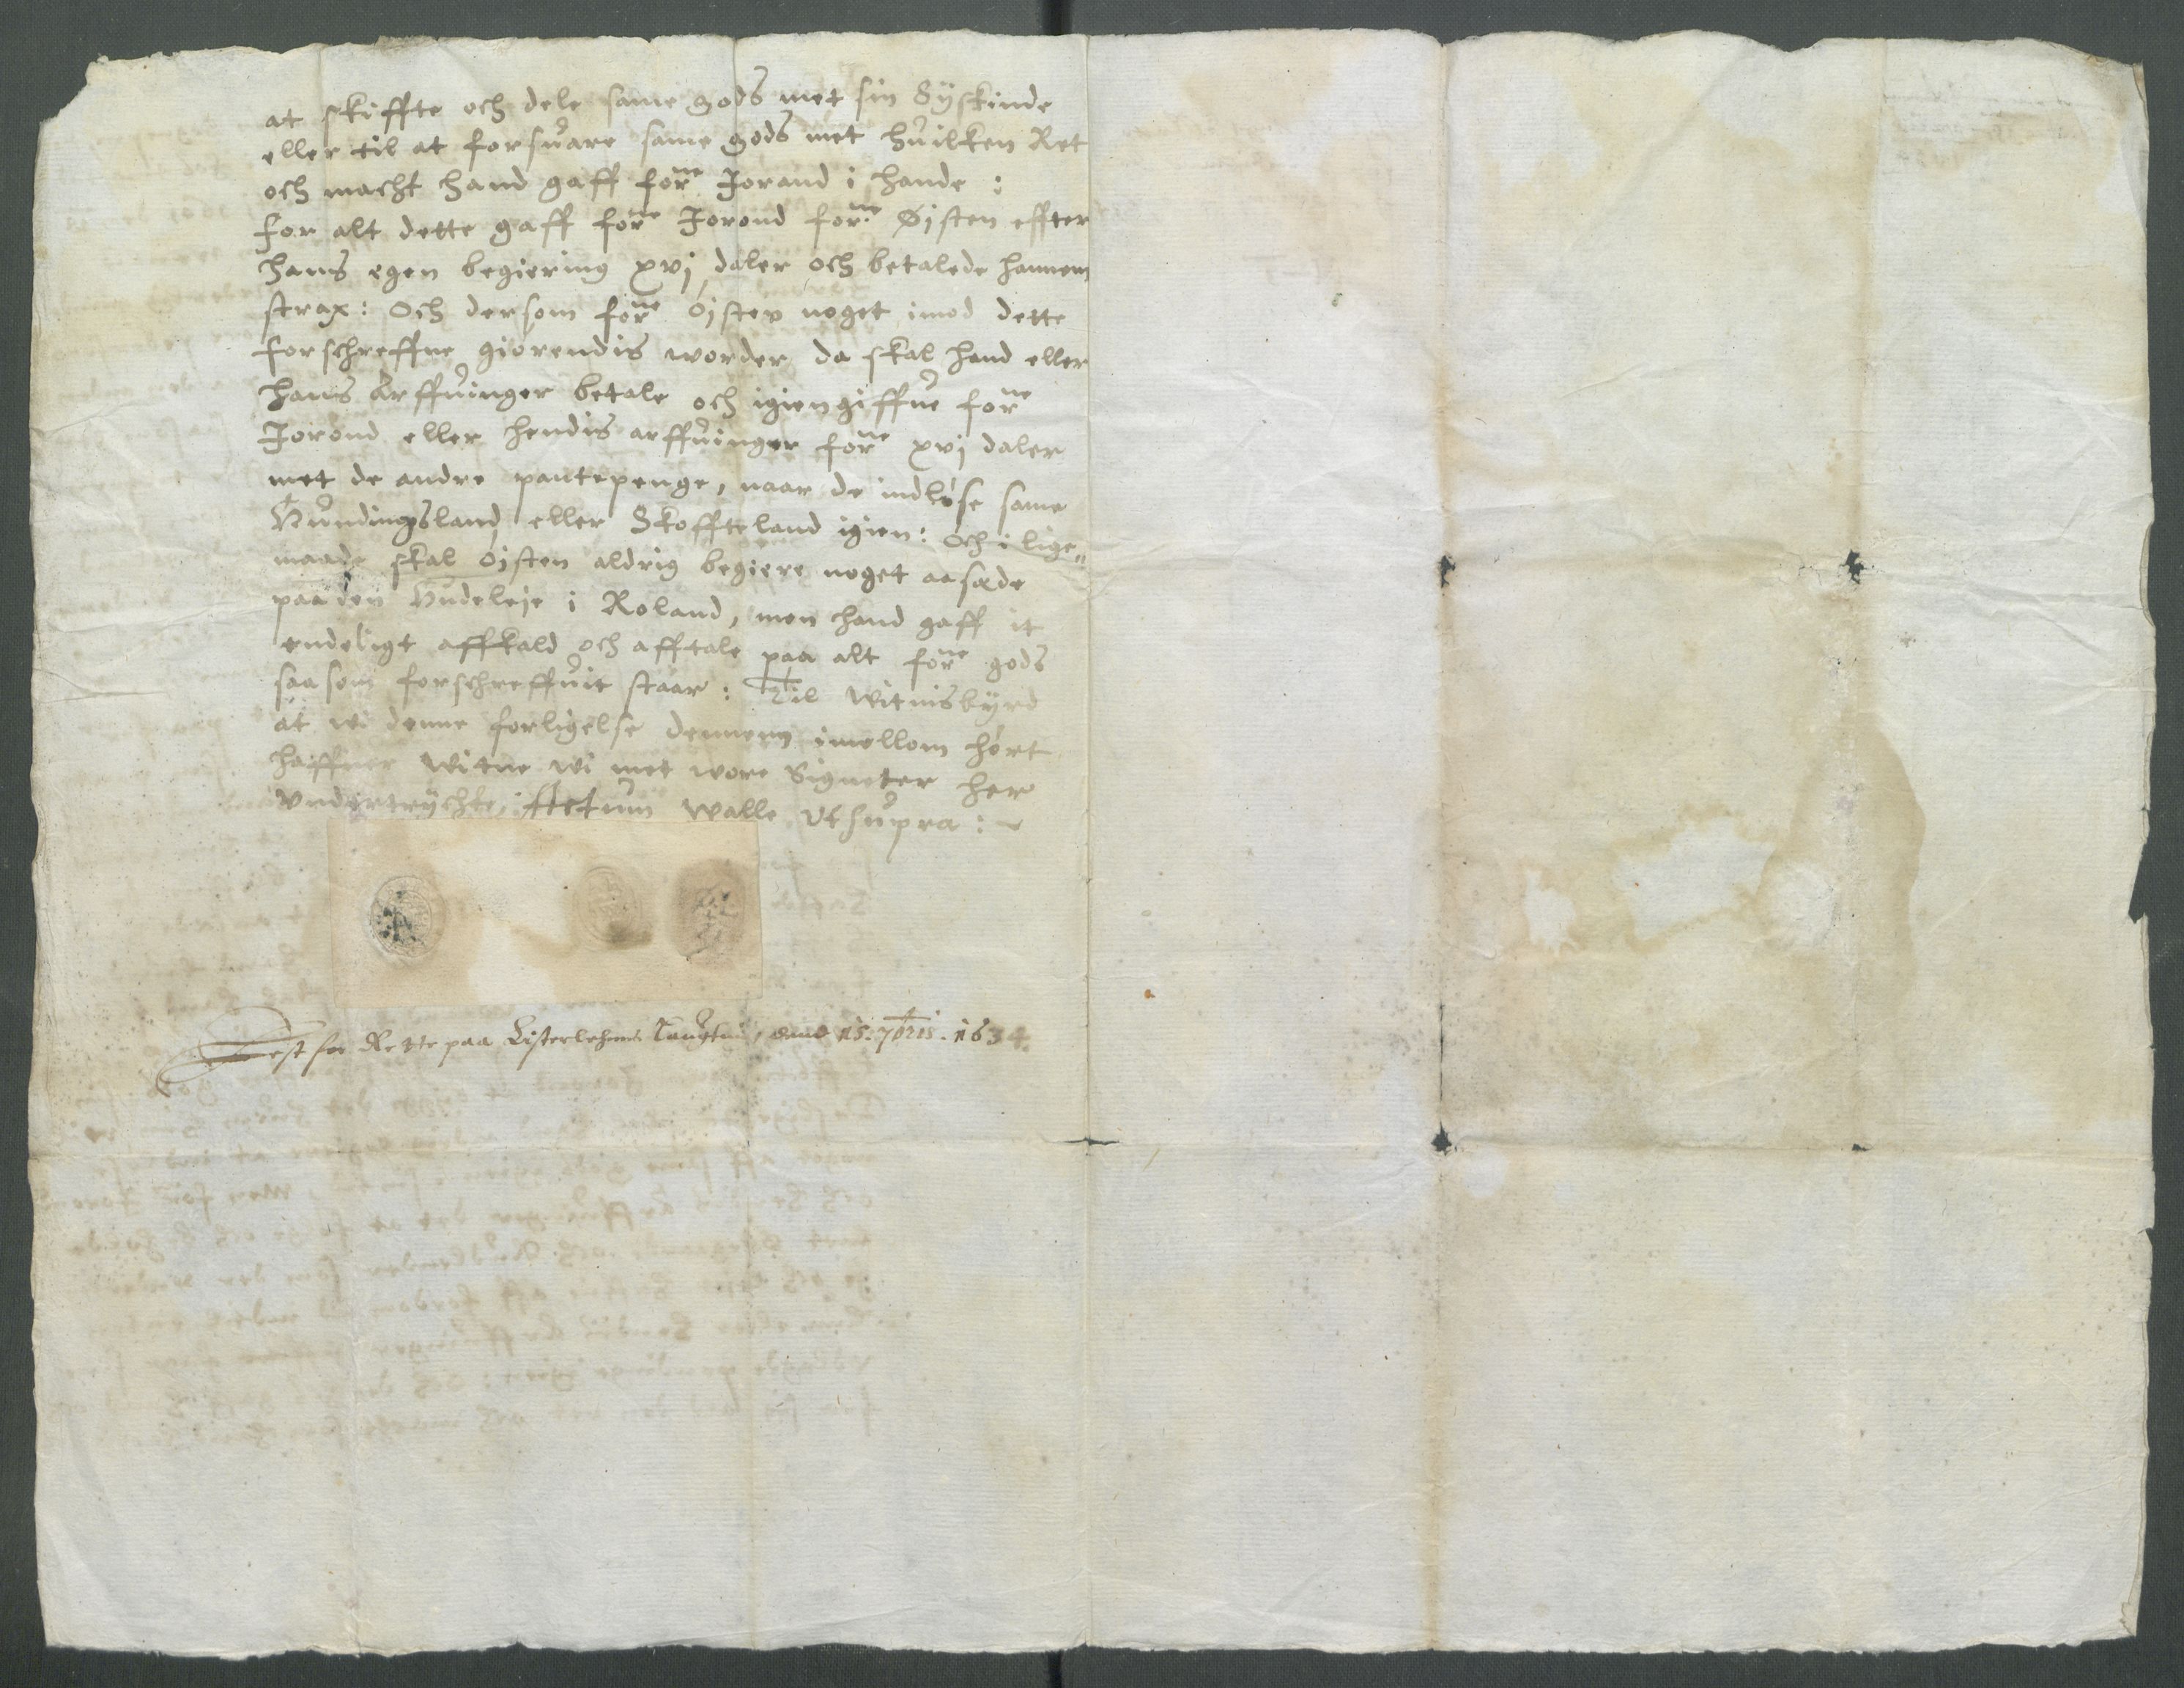 at skiffte och dele same gods met sin Syskinde
eller til at forsuare same gods met huilken Ret
och macht hand gaff forne Jorand i hande :
for alt dette gaff forne Jorond forne Øisten effter
hans egen begiering xvj daler och betalede hannem
strax : Och dersom forne Öisten noget imod dette
forschreffne giörendis worder da skal hand eller
hans Arffuinger betale och igiengiffue forne
Jorond eller hendis arffuinger forne xvj daler
met de andre pantepenge, naar de indlöse same
Hundingsland eller Skoffteland igien : Och i lige„
maade skal öisten aldrig begiere noget aasæde
paa den Hudeleje i Roland, men hand gaff it
endeligt affkald och afftale paa alt forne gods
saa som forschreffuit staar : Til witnisbyrd
at wi denne forligelse dennem imellom hört
haffuer witne wi met wore Signeter her
vndertrychte, Actum Walle Vt supra :
Lest for Rette paa Listerlehens Laugting, dend 15. 7bris. 1634.